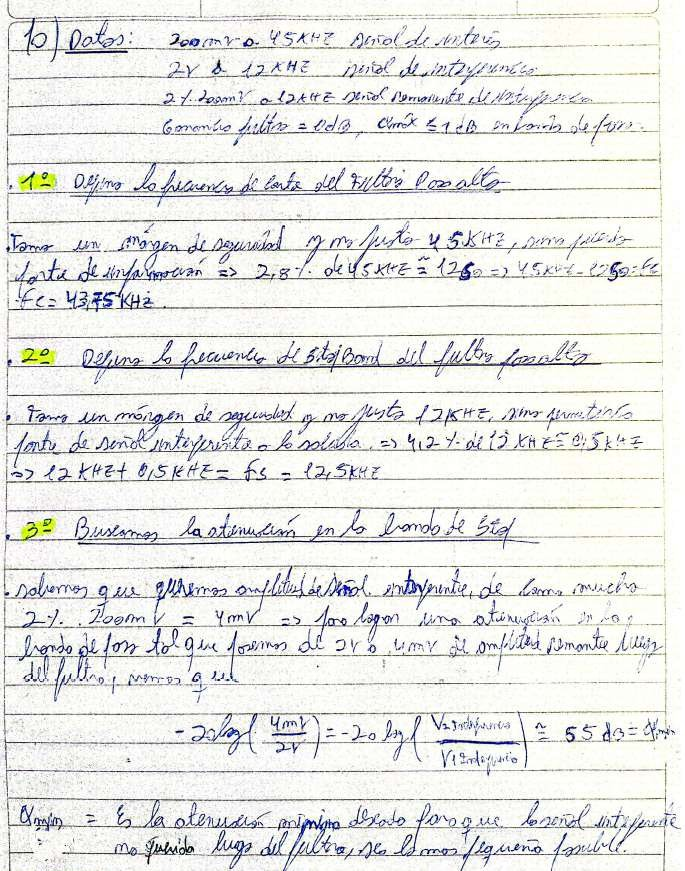 b) Datos: 200mV a 45KHZ señal de interés
2V a 12KHZ señal de interferencia
2%. 200mV a 12KHZ señal remanente de interferencia
Ganancia filtro = 0dB, αmáx ≤ 1dB en banda de paso.
1º Defino la frecuencia de corte del Filtro Pasa alto
Tomo un márgen de seguridad y no justo 45KHZ, sino pierdo
parte de información => 2,8% de 45KHZ ≅ 1250 => 45KHZ - 1250 = Fc
Fc = 43,75KHZ.
2º Defino la frecuencia de Stop Band del filtro pasa alto
Tomo un márgen de seguridad y no justo 12KHZ, sino permitiría
parte de señal interferente a la salida. => 4,2% de 12KHZ ≅ 0,5KHZ
=> 12KHZ + 0,5KHZ = Fs = 12,5KHZ
3º Buscamos la atenuación en la banda de Stop
sabemos que queremos amplitud de señal interferente, de como mucho
2%. 200mV = 4mV => para lograr una atenuación en la
banda de paso tal que pasemos de 2V a 4mV de amplitud remante luego
del filtro, vemos que
-20log(4mV/2V) = -20log(V2 Interferencia/V1 Interferencia) ≅ 55dB = αmín
αmín = Es la atenuación mínima deseada para que la señal interferente
no querida luego del filtro, sea lo mas pequeña posible.